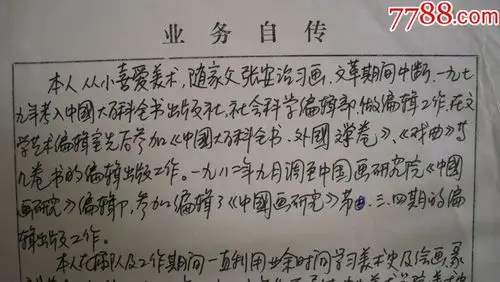 7788.com
业务自传
本人从小喜爱美术，随家父张安治习画，文革期间中断，一九七
九年考入中國大百科全书出版社，社会科学编辑部，做编辑工作，在文
学艺术编辑室先后参加《中國大百科全书．外國文学卷》、《戏曲》等
几卷书的编辑出版工作。一九八二年九月调至中国画研究院《中國
画研究》编辑部，参加编辑了《中國画研究》第二．三．四期的编
辑出版工作。
本人在部队及工作期间一直利用业余时间学习美术史及绘画，